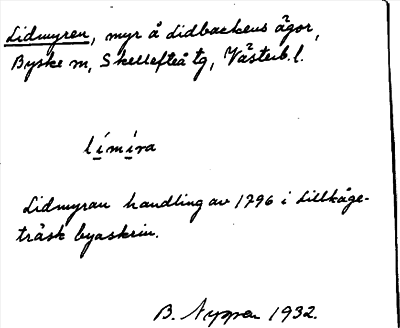 Lidmyren, myr å Lidbackens ägor,
Byske sn, Skellefteå tg, Västerb. l.
límíra
Lidmyran handling av 1796 i Lillkåge-
träsk byaskrin.
B. Nygren 1932.